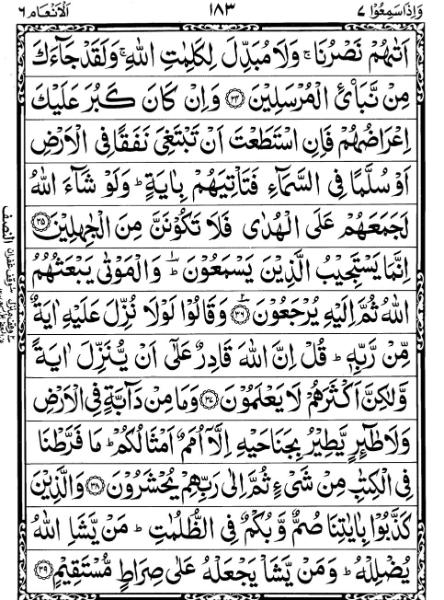 وَاِذَاسَمِعُوْا ٧ ١٨٣ اَلْاَنْعَام ٦
اَتٰىهُمْ نَصْرُنَا ۚ وَلَا مُبَدِّلَ لِكَلِمٰتِ اللّٰهِ ۚ وَلَقَدْ جَآءَكَ
مِنْ نَّبَاِئ الْمُرْسَلِيْنَ ﴿٣٤﴾ وَاِنْ كَانَ كَبُرَ عَلَيْكَ
اِعْرَاضُهُمْ فَاِنِ اسْتَطَعْتَ اَنْ تَبْتَغِىَ نَفَقًا فِى الْاَرْضِ
اَوْ سُلَّمًا فِى السَّمَآءِ فَتَاْتِيَهُمْ بِاٰيَةٍ ؕ وَلَوْ شَآءَ اللّٰهُ
لَجَمَعَهُمْ عَلَى الْهُدٰى فَلَا تَكُوْنَنَّ مِنَ الْجٰهِلِيْنَ ﴿٣٥﴾
اِنَّمَا يَسْتَجِيْبُ الَّذِيْنَ يَسْمَعُوْنَ ؕ وَالْمَوْتٰى يَبْعَثُهُمُ
اللّٰهُ ثُمَّ اِلَيْهِ يُرْجَعُوْنَ ﴿٣٦﴾ وَقَالُوْا لَوْلَا نُزِّلَ عَلَيْهِ اٰيَةٌ
مِّنْ رَّبِّهٖ ؕ قُلْ اِنَّ اللّٰهَ قَادِرٌ عَلٰٓى اَنْ يُّنَزِّلَ اٰيَةً
وَّلٰكِنَّ اَكْثَرَهُمْ لَا يَعْلَمُوْنَ ﴿٣٧﴾ وَمَا مِنْ دَآبَّةٍ فِى الْاَرْضِ
وَلَا طٰٓئِرٍ يَّطِيْرُ بِجَنَاحَيْهِ اِلَّآ اُمَمٌ اَمْثَالُكُمْ ؕ مَا فَرَّطْنَا
فِى الْكِتٰبِ مِنْ شَىْءٍ ثُمَّ اِلٰى رَبِّهِمْ يُحْشَرُوْنَ ﴿٣٨﴾ وَالَّذِيْنَ
كَذَّبُوْا بِاٰيٰتِنَا صُمٌّ وَّبُكْمٌ فِى الظُّلُمٰتِ ؕ مَنْ يَّشَاِ اللّٰهُ
يُضْلِلْهُ ؕ وَمَنْ يَّشَاْ يَجْعَلْهُ عَلٰى صِرَاطٍ مُّسْتَقِيْمٍ ﴿٣٩﴾
النصف